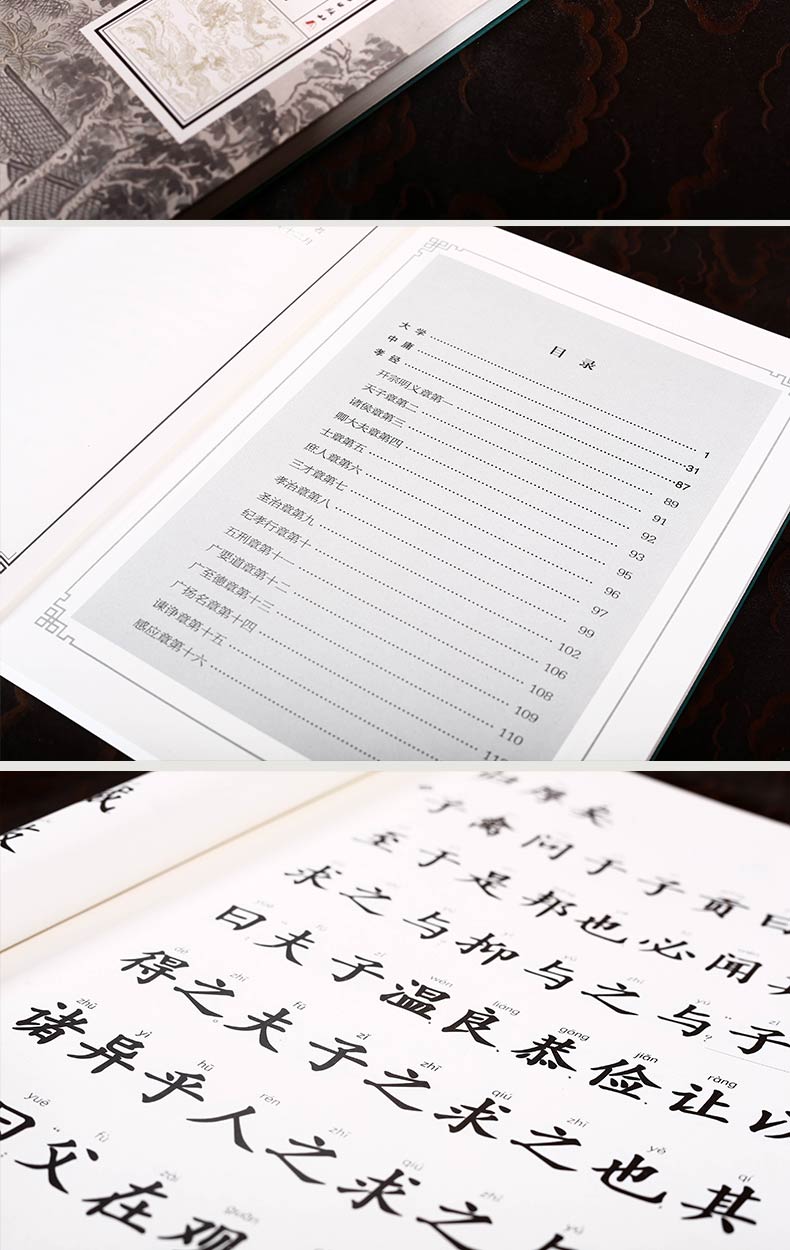 者
十二月
目 录
大 学 1
中 庸 31
孝 经 87
开宗明义章第一 89
天子章第二 91
诸侯章第三 92
卿大夫章第四 93
士章第五 95
庶人章第六 96
三才章第七 97
孝治章第八 99
圣治章第九 102
纪孝行章第十 106
五刑章第十一 108
广要道章第十二 109
广至德章第十三 110
广扬名章第十四
谏诤章第十五
感应章第十六
民
归厚矣
子禽问于子贡曰
至于是邦也必闻其
求之与抑与之与？“子
wēn liáng gōng jiǎn ràng
曰“夫子温、良、恭、俭、让以
dé zhī fū zǐ zhī qiú zhī yě qí
得之。夫子之求之也其
zhū yì hū rén zhī qiú zhī yú
诸异乎人之求之与
yuē fù zài guān
曰：“父在观